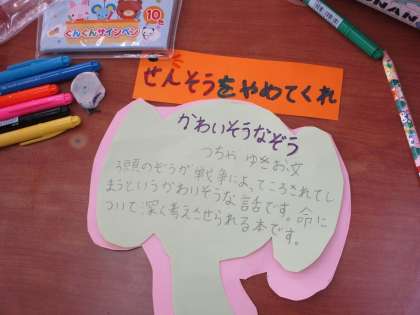 10色
くんくんサインペン
せんそうをやめてくれ
かわいそうなぞう
つちや ゆきお文
3頭のぞうが戦争によってころされてし
まうというかわいそうな話です。命に
ついて深く考えさせられる本です。